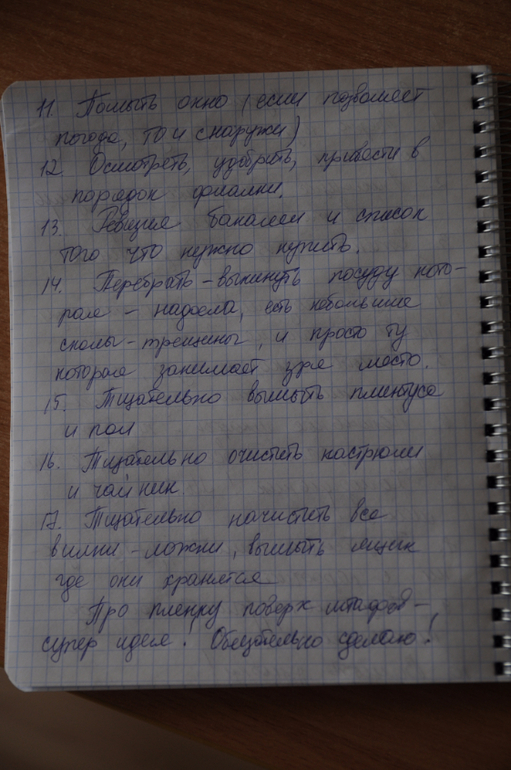 11. Помыть окно (если позволяет
погода, то и снаружи)
12 Осмотреть, удобрить, привести в
порядок фиалки.
13. Ревизия бакалеи и список
того что нужно купить.
14. Перебрать-выкинуть посуду кото-
рая - надоела, есть небольшие
сколы-трещины, и просто ту
которая занимает зря место.
15. Тщательно вымыть плинтуса
и пол
16. Тщательно очистить кастрюли
и чайник.
17. Тщательно начистить все
вилки-ложки, вымыть ящик
где они хранятся
Про пленку поверх шкафов -
супер идея! Обязательно сделаю!